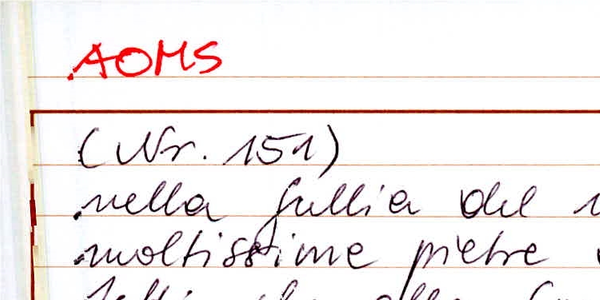 AOMS
(Nr. 151)
nella Gullia del
moltissime pietre